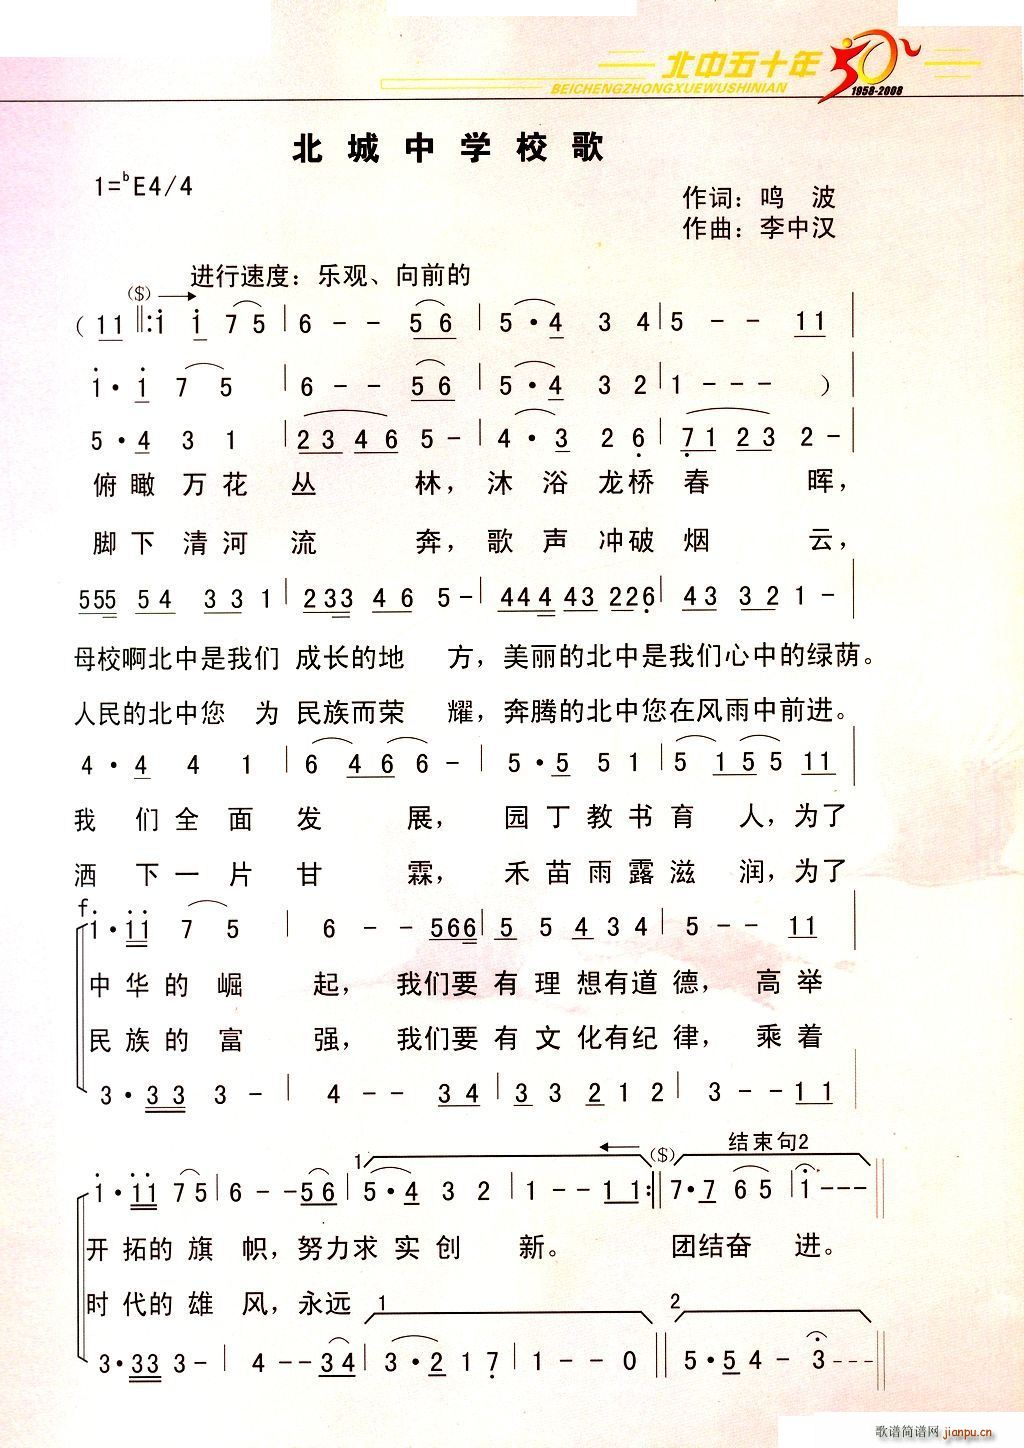 北中五十年
BEICHENGZHONGXUEWUSHINIAN
50
1958-2008
北城中学校歌
1=bE4/4
作词：鸣 波
作曲：李中汉
进行速度：乐观、向前的
($)
( 11 ‖: i i 7 5 | 6 - - 5 6 | 5 · 4 3 4 | 5 - - 11 |
i · i 7 5 | 6 - - 5 6 | 5 · 4 3 2 | 1 - - - ) |
5 · 4 3 1 | 2 3 4 6 5 - | 4 · 3 2 6 | 7 1 2 3 2 - |
俯瞰万花丛 林，沐浴龙桥春 晖，
脚下清河流 奔，歌声冲破烟 云，
555 54 33 1 | 233 46 5 - | 444 43 226 | 43 32 1 - |
母校啊北中是我们 成长的地 方，美丽的北中是我们心中的绿荫。
人民的北中您 为 民族而荣 耀，奔腾的北中您在风雨中前进。
4 · 4 4 1 | 6 46 6 - | 5 · 5 5 1 | 5 15 5 11 |
我 们全面 发 展，园丁教书育 人，为了
洒 下一片 甘 霖，禾苗雨露滋 润，为了
f
i · ii 7 5 | 6 - - 566 | 5 5 4 3 4 | 5 - - 11 |
中华的 崛 起，我们要有理想有道德，高举
民族的 富 强，我们要有文化有纪律，乘着
3 · 33 3 - | 4 - - 34 | 3 3 2 1 2 | 3 - - 11 |
结束句2
1 ($)
i · ii 75 | 6 - - 56 | 5 · 4 3 2 | 1 - - 11 :‖ 7 · 7 65 | i - - - ‖
开拓的旗 帜，努力求实创 新。 团结奋 进。
时代的雄 风，永远 1 2
3 · 33 3 - | 4 - - 34 | 3 · 2 1 7 | 1 - - 0 ‖ 5 · 5 4 - 3 - - - ‖
歌谱简谱网 jianpu.cn